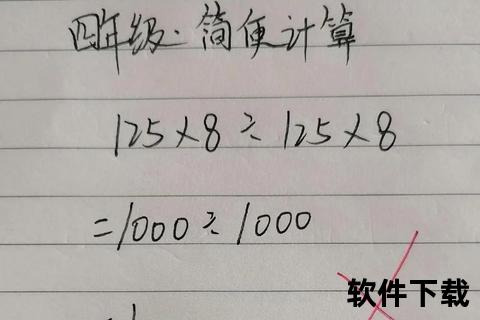 四年级·简便计算
125×8÷125×8
=1000÷1000
软件下载